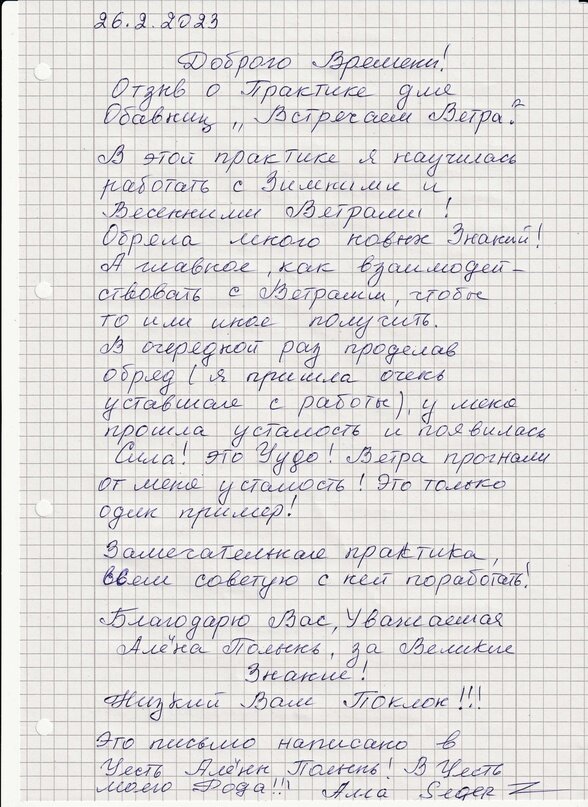 26.2.2023
Доброго Времени!
Отзыв о Практике для
Обавниц „Встречаем Ветра"
В этой практике я научилась
работать с Зимними и
Весенними Ветрами!
Обрела много новых Знаний!
А главное, как взаимодей-
ствовать с Ветрами, чтобы
то или иное получить.
В очередной раз проделав
обряд (я пришла очень
уставшая с работы), у меня
прошла усталость и появилась
Сила! Это Чудо! Ветра прогнали
от меня усталость! Это только
один пример!
Замечательная практика,
всем советую с ней поработать!
Благодарю Вас, Уважаемая
Алёна Полынь, за Великие
Знания!
Низкий Вам Поклон!!!
Это письмо написано в
Честь Алёны Полынь! В Честь
моего Рода!!! Алла Seger